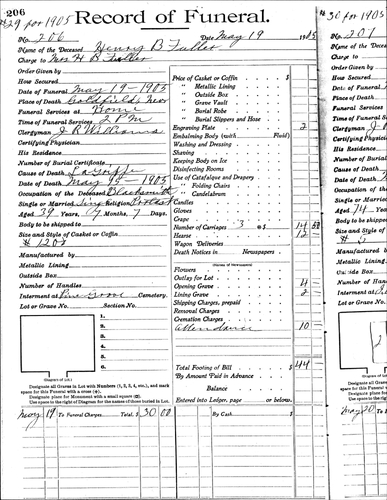 206
#29 for 1905
Record of Funeral.
No. 206 Date May 19 1905
Name of the Deceased Henry B Fuller
Charge to Mrs H B Fuller
Order Given by
How Secured
Date of Funeral May 19-1905
Place of Death Goldfield, Nev
Funeral Services at Home
Time of Funeral Services 2 PM
Clergyman J R Williams
Certifying Physician
His Residence
Number of Burial Certificate
Cause of Death La Grippe
Date of Death May 1905
Occupation of the Deceased Blacksmith
Single or Married Sin Religion
Aged 39 Years, 7 Months, 7 Days
Body to be shipped to
Size and Style of Casket or Coffin
# 1200
Manufactured by
Metallic Lining
Outside Box
Number of Handles
Interment at Pine Grove Cemetery.
Lot or Grave No. Section No.
1.
2.
3.
4.
5.
6.
(Diagram of Lot)
Designate all Graves in Lot with Numbers (1, 2, 3, 4, etc.), and mark
space for this Funeral with a cross (+).
Designate place for Monument with small square (□).
Use space in right of Diagram for the names of those buried in Lot.
Price of Casket or Coffin $
" Metallic Lining
" Outside Box
" Grave Vault
" Burial Robe
" Burial Slippers and Hose
Engraving Plate 2
Embalming Body (with Fluid)
Washing and Dressing
Shaving
Keeping Body on Ice
Disinfecting Rooms
Use of Catafalque and Drapery
" Folding Chairs
" Candelabrum
Candles
Gloves
Crape
Number of Carriages 3 @ $ 14
Hearse 12
Wagon Deliveries
Death Notices in Newspapers
(Names of Newspapers)
Flowers
Outlay for Lot
Opening Grave 4
Lining Grave 2
Shipping Charges, prepaid
Removal Charges
Cremation Charges
Attendance 10
Total Footing of Bill $ 44
By Amount Paid in Advance
Balance
Entered into Ledger, page or below.
May 19 To Funeral Charges Total, $ 30 00
By Cash $
#30 for 1905
No. 207
Name of the Deceased
Charge to
Order Given by
How Secured
Date of Funeral
Place of Death
Funeral Services at
Time of Funeral Services
Clergyman J
Certifying Physician
His Residence
Number of Burial
Cause of Death
Date of Death
Occupation of the
Single or Married
Aged 74 Years,
Body to be shipped
Size and Style of
Manufactured by
Metallic Lining
Outside Box
Number of Handles
Interment at
Lot or Grave No.
(Diagram of Lot)
Designate all
space for this Funeral
Designate place
Use space in right
May 20 To